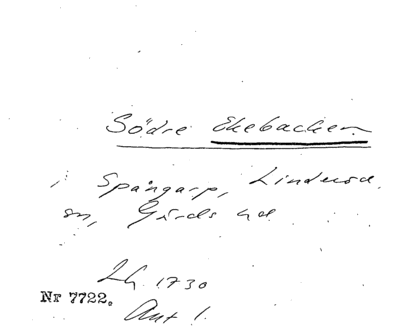 Södre Ekebacken
i Spångarp, Linderöd
sn, Gärds hd
Lh. 1730
Nr 7722.
Ant 1.